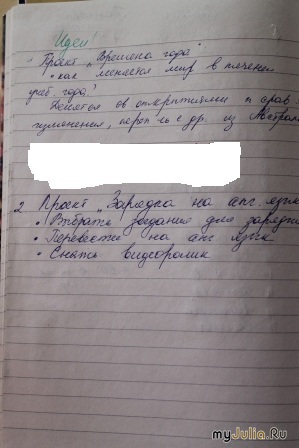 Идеи
1 Проект „Времена года"
• как меняется мир в течении
учеб. года!
Делятся об открытиями и срав
изменения, с др. из Австрал
2. Проект „Зарядка на анг. языке
• Выбрать задания для зарядки
• Перевести на анг язык
• Снять видеоролик
myJulia.Ru